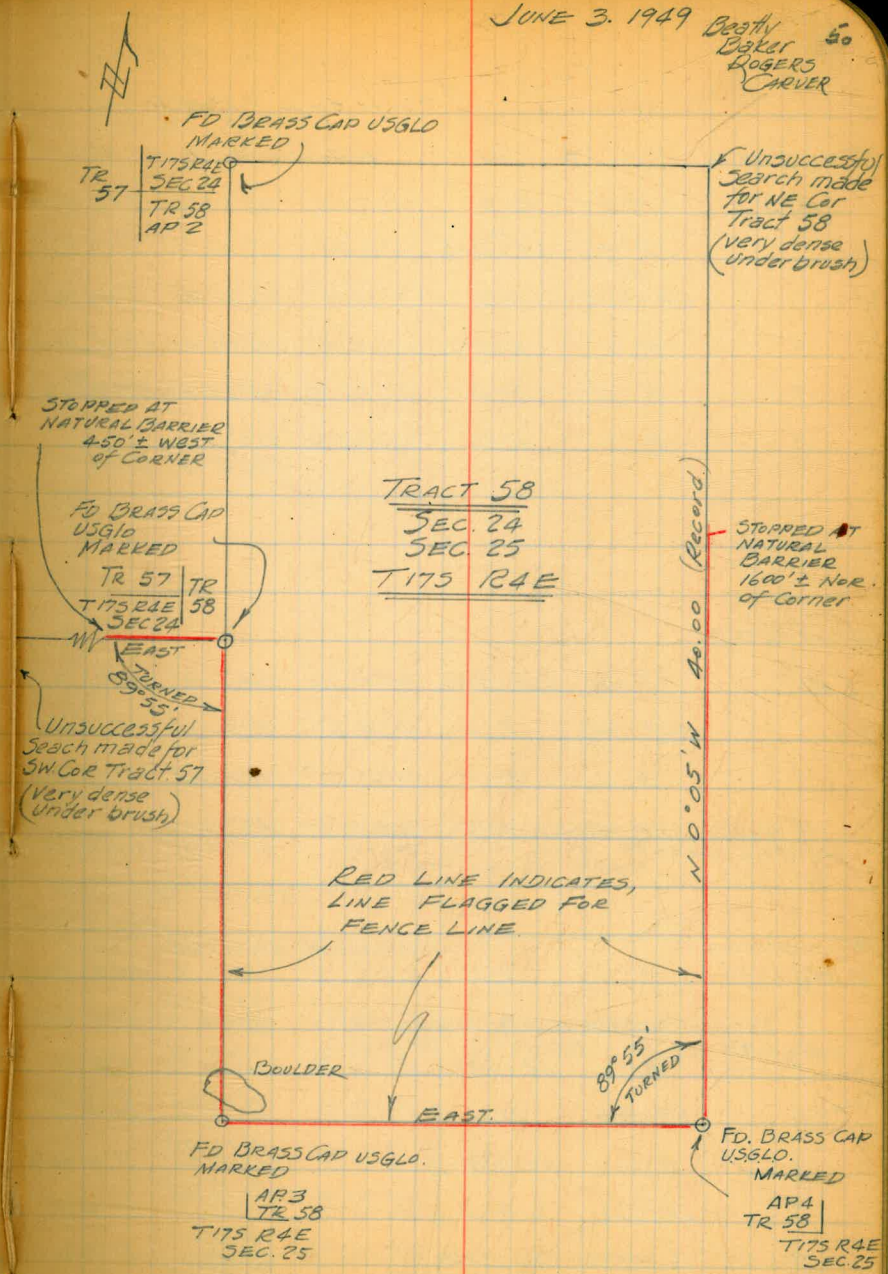 JUNE 3. 1949
Beatty
Baker
ROGERS
CARVER
50
FD BRASS CAP USGLO
MARKED
TR
57
T17S R4E
SEC 24
TR 58
AP 2
Unsuccessful
Search made
for NE Cor
Tract 58
(very dense
under brush)
STOPPED AT
NATURAL BARRIER
450' ± WEST
of CORNER
FD BRASS CAP
USGlo
MARKED
TR 57
TR
58
T17S R4E
SEC 24
EAST
TURNED
89° 55'
Unsuccessful
Seach made for
SW. COR Tract 57
(very dense
under brush)
TRACT 58
SEC. 24
SEC. 25
T17S R4E
N 0° 05' W 40.00 (Record)
STOPPED AT
NATURAL
BARRIER
1600' ± NOR.
of Corner
RED LINE INDICATES,
LINE FLAGGED FOR
FENCE LINE
BOULDER
89° 55'
TURNED
EAST.
FD BRASS CAP USGLO.
MARKED
AP.3
TR 58
T17S R4E
SEC. 25
FD. BRASS CAP
U.S.G.L.O.
MARKED
AP4
TR 58
T17S R4E
SEC. 25